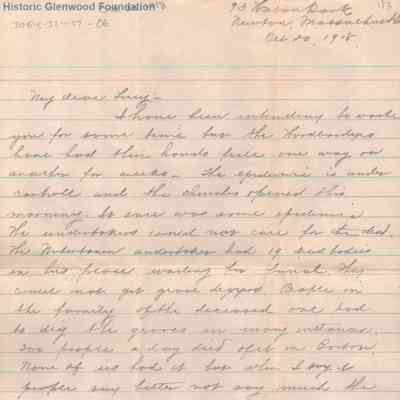 Historic Glenwood Foundation
1/3
Newton, Massachusetts
Oct 20, 1918.
My dear Lucy-
I have been intending to write
you for some time but the
have had their hands full one way or
another for weeks. The epidemic is under
controll and the churches opened this
morning. It sure was some epidemic.
The undertakers could not care for the dead.
The Watertown undertaker had 19 dead bodies
in his place waiting for burial they
could not get graves digged. People in
the family of the deceased one had
to dig the graves in many instances.
200 people a day died of it in Boston.
None of us had it but when I say it
people say better not say much the